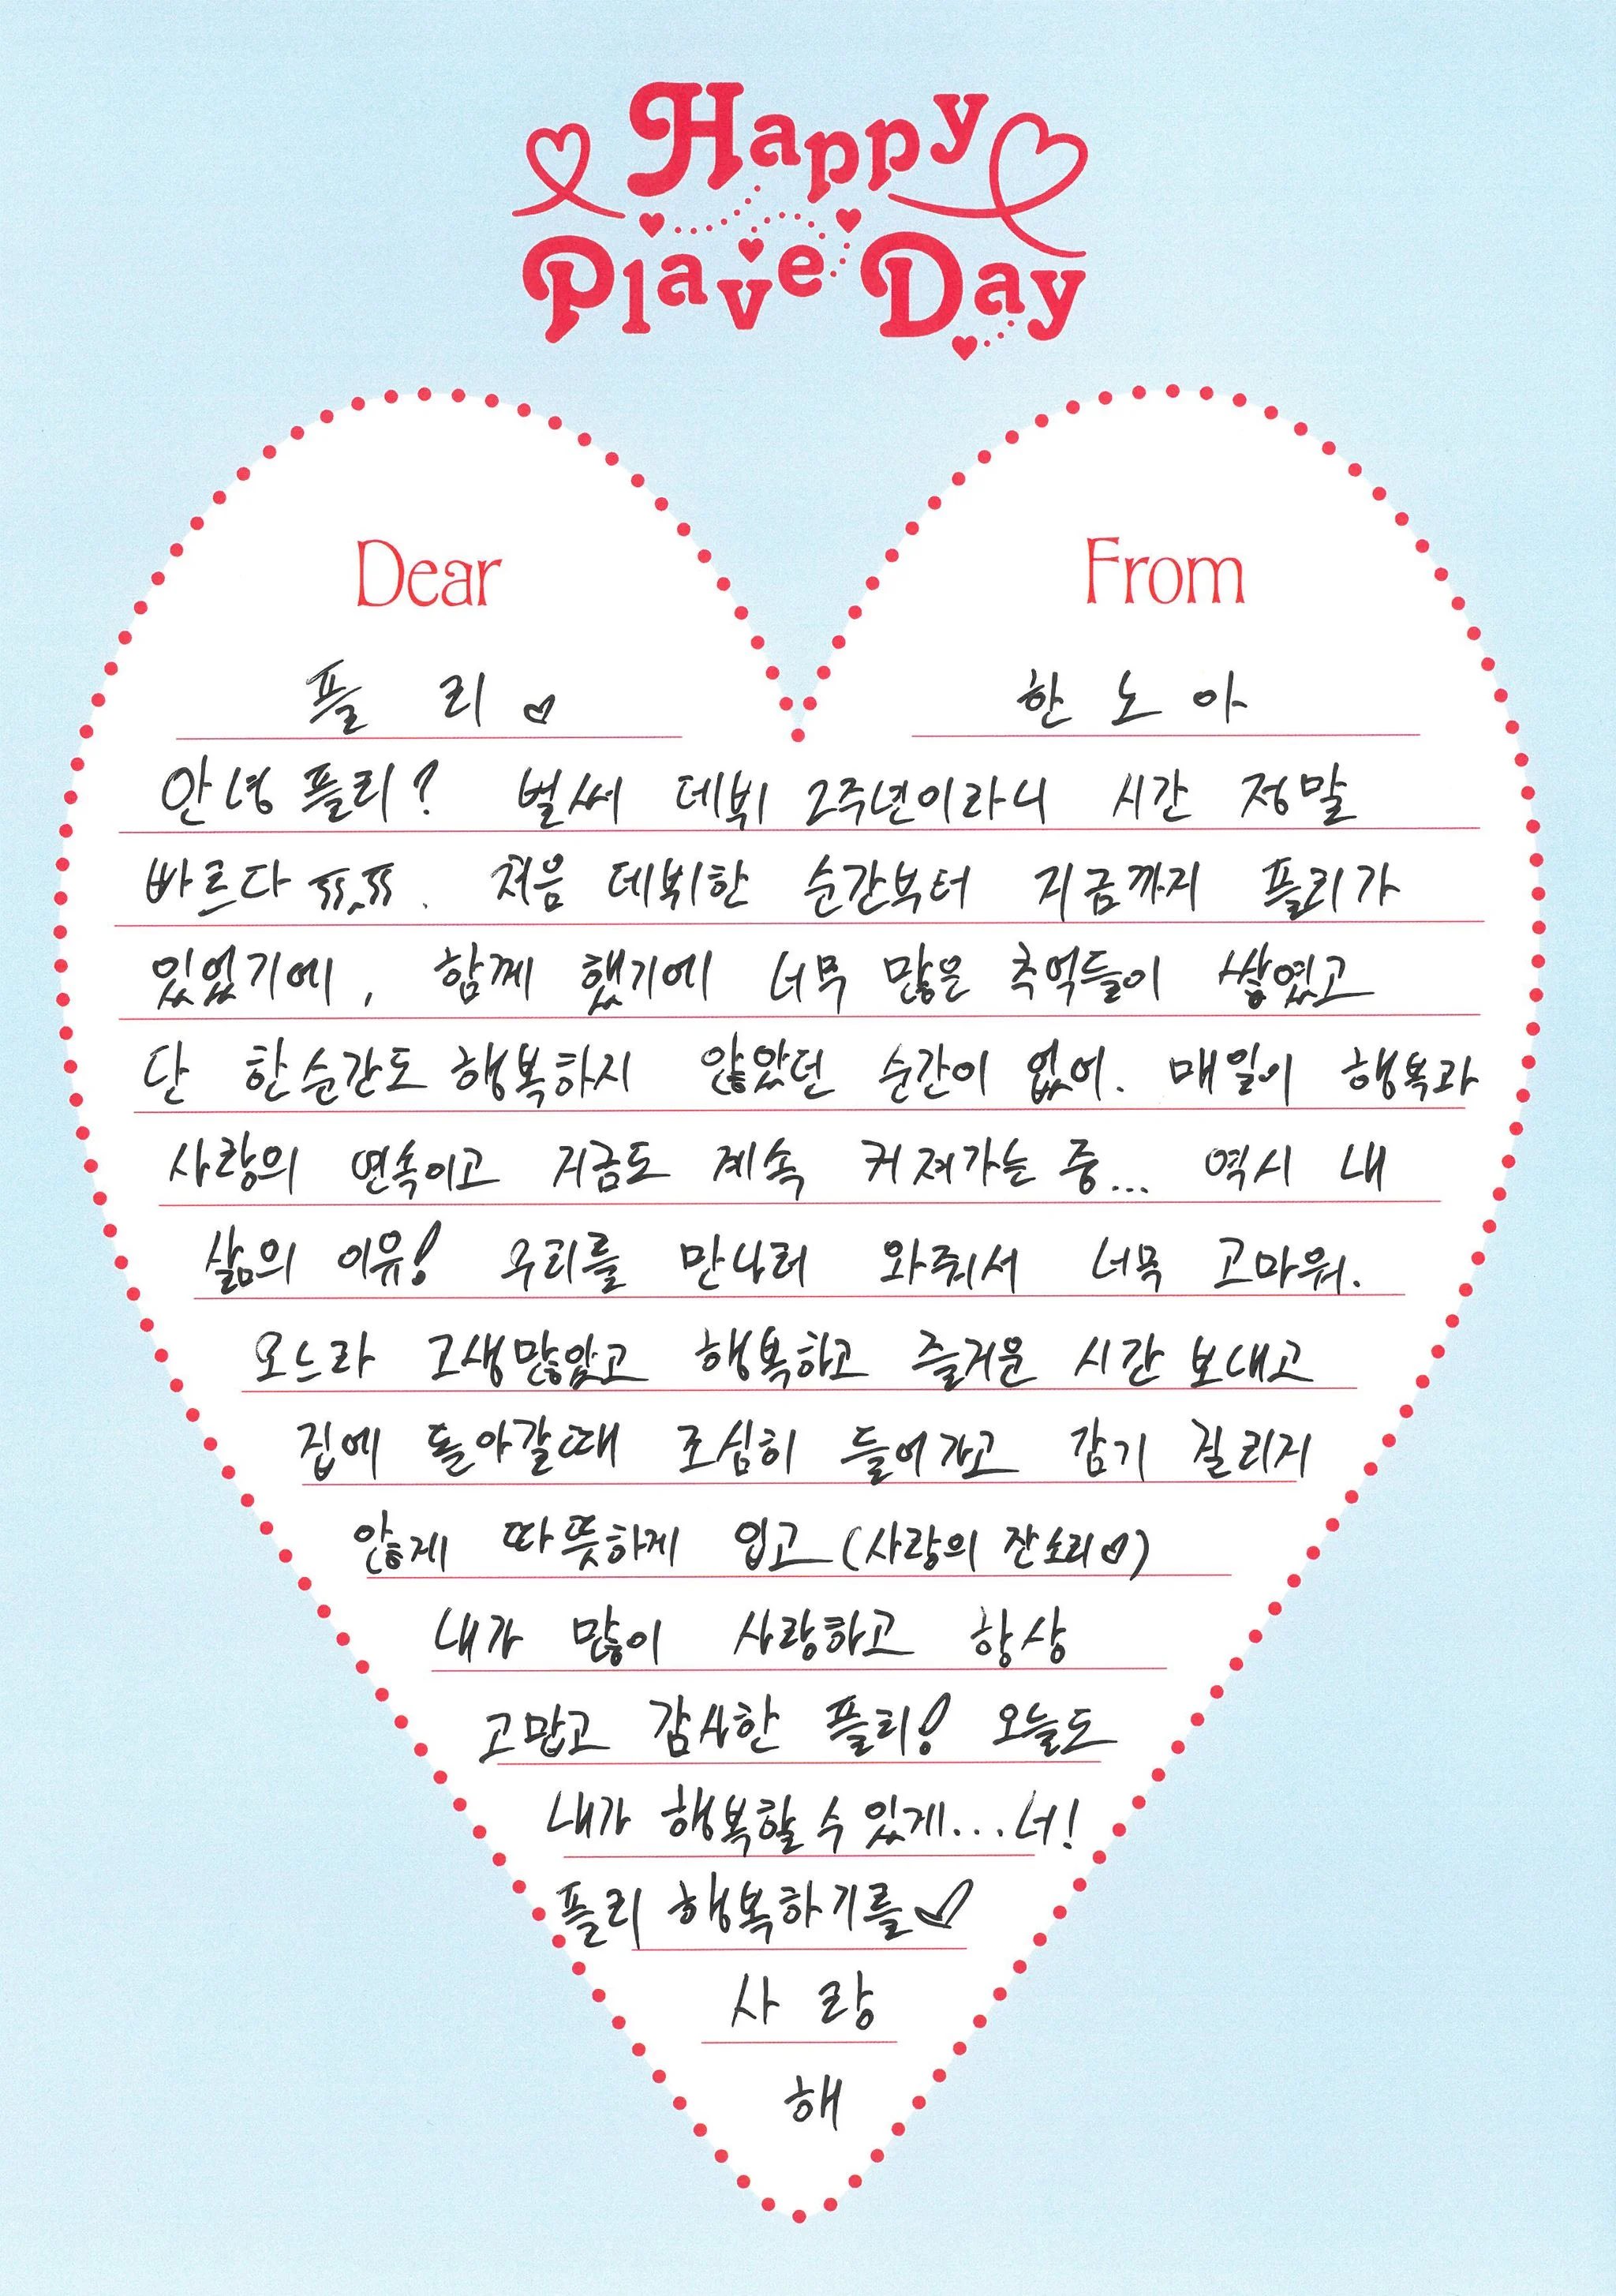 Happy
Plave Day
Dear
From
플리♡
한노아
안녕 플리? 벌써 데뷔 2주년이라니 시간 정말
빠르다 ㅠ.ㅠ. 처음 데뷔한 순간부터 지금까지 플리가
있었기에, 함께 했기에 너무 많은 추억들이 쌓였고
단 한순간도 행복하지 않았던 순간이 없어. 매일이 행복과
사랑의 연속이고 지금도 계속 커져가는 중... 역시 내
삶의 이유! 우리를 만나러 와줘서 너무 고마워.
오느라 고생많았고 행복하고 즐거운 시간 보내고
집에 돌아갈때 조심히 들어가고 감기 걸리지
않게 따뜻하게 입고 (사랑의 잔소리♡)
내가 많이 사랑하고 항상
고맙고 감사한 플리! 오늘도
내가 행복할 수 있게...너!
플리 행복하기를♡
사랑
해